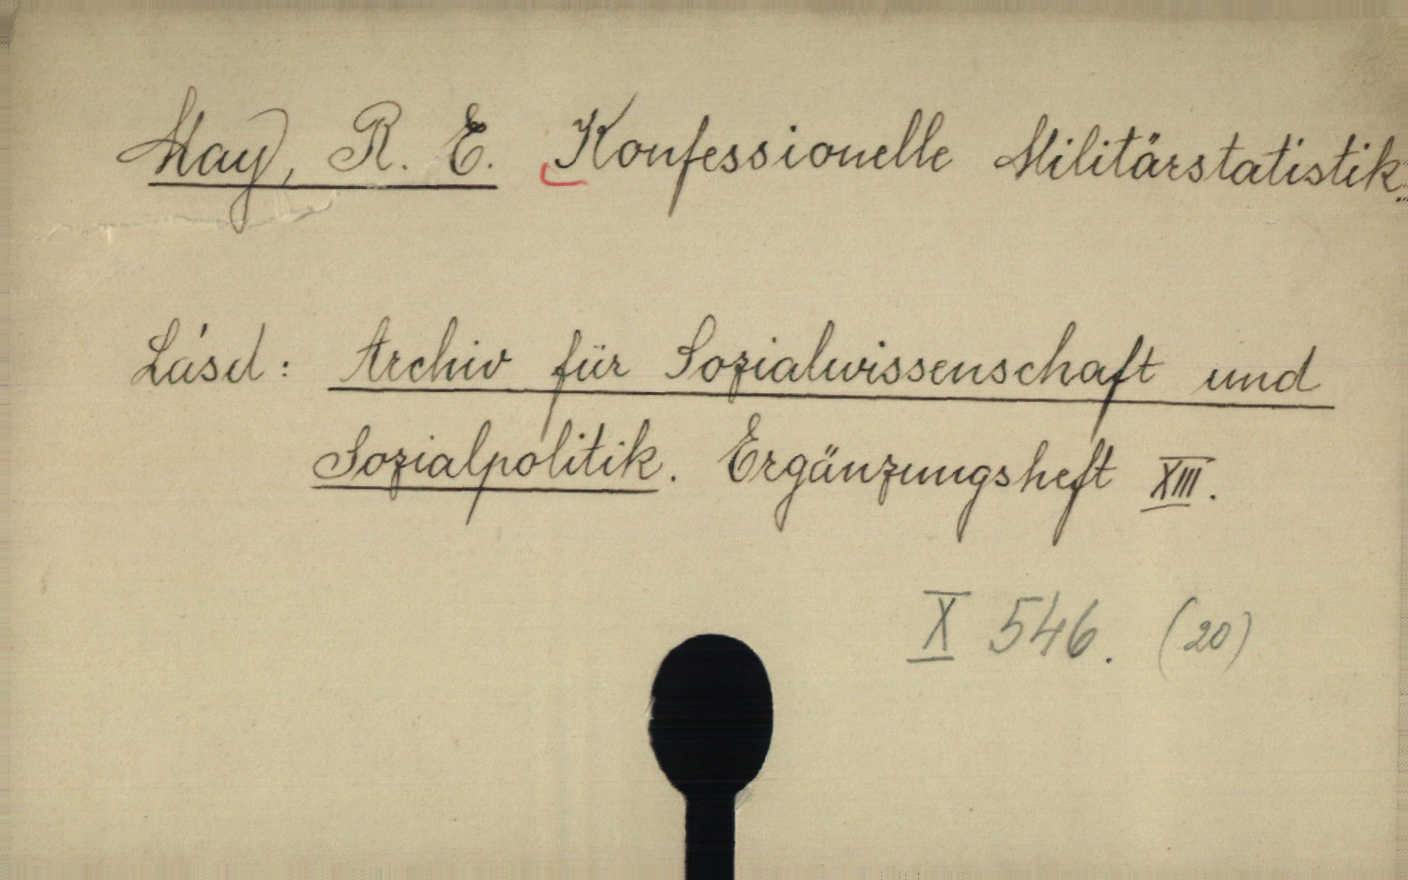 May, R. E. Konfessionelle Militärstatistik.
Lásd: Archiv für Sozialwissenschaft und
Sozialpolitik. Ergänzungsheft XIII.
X 546. (20)